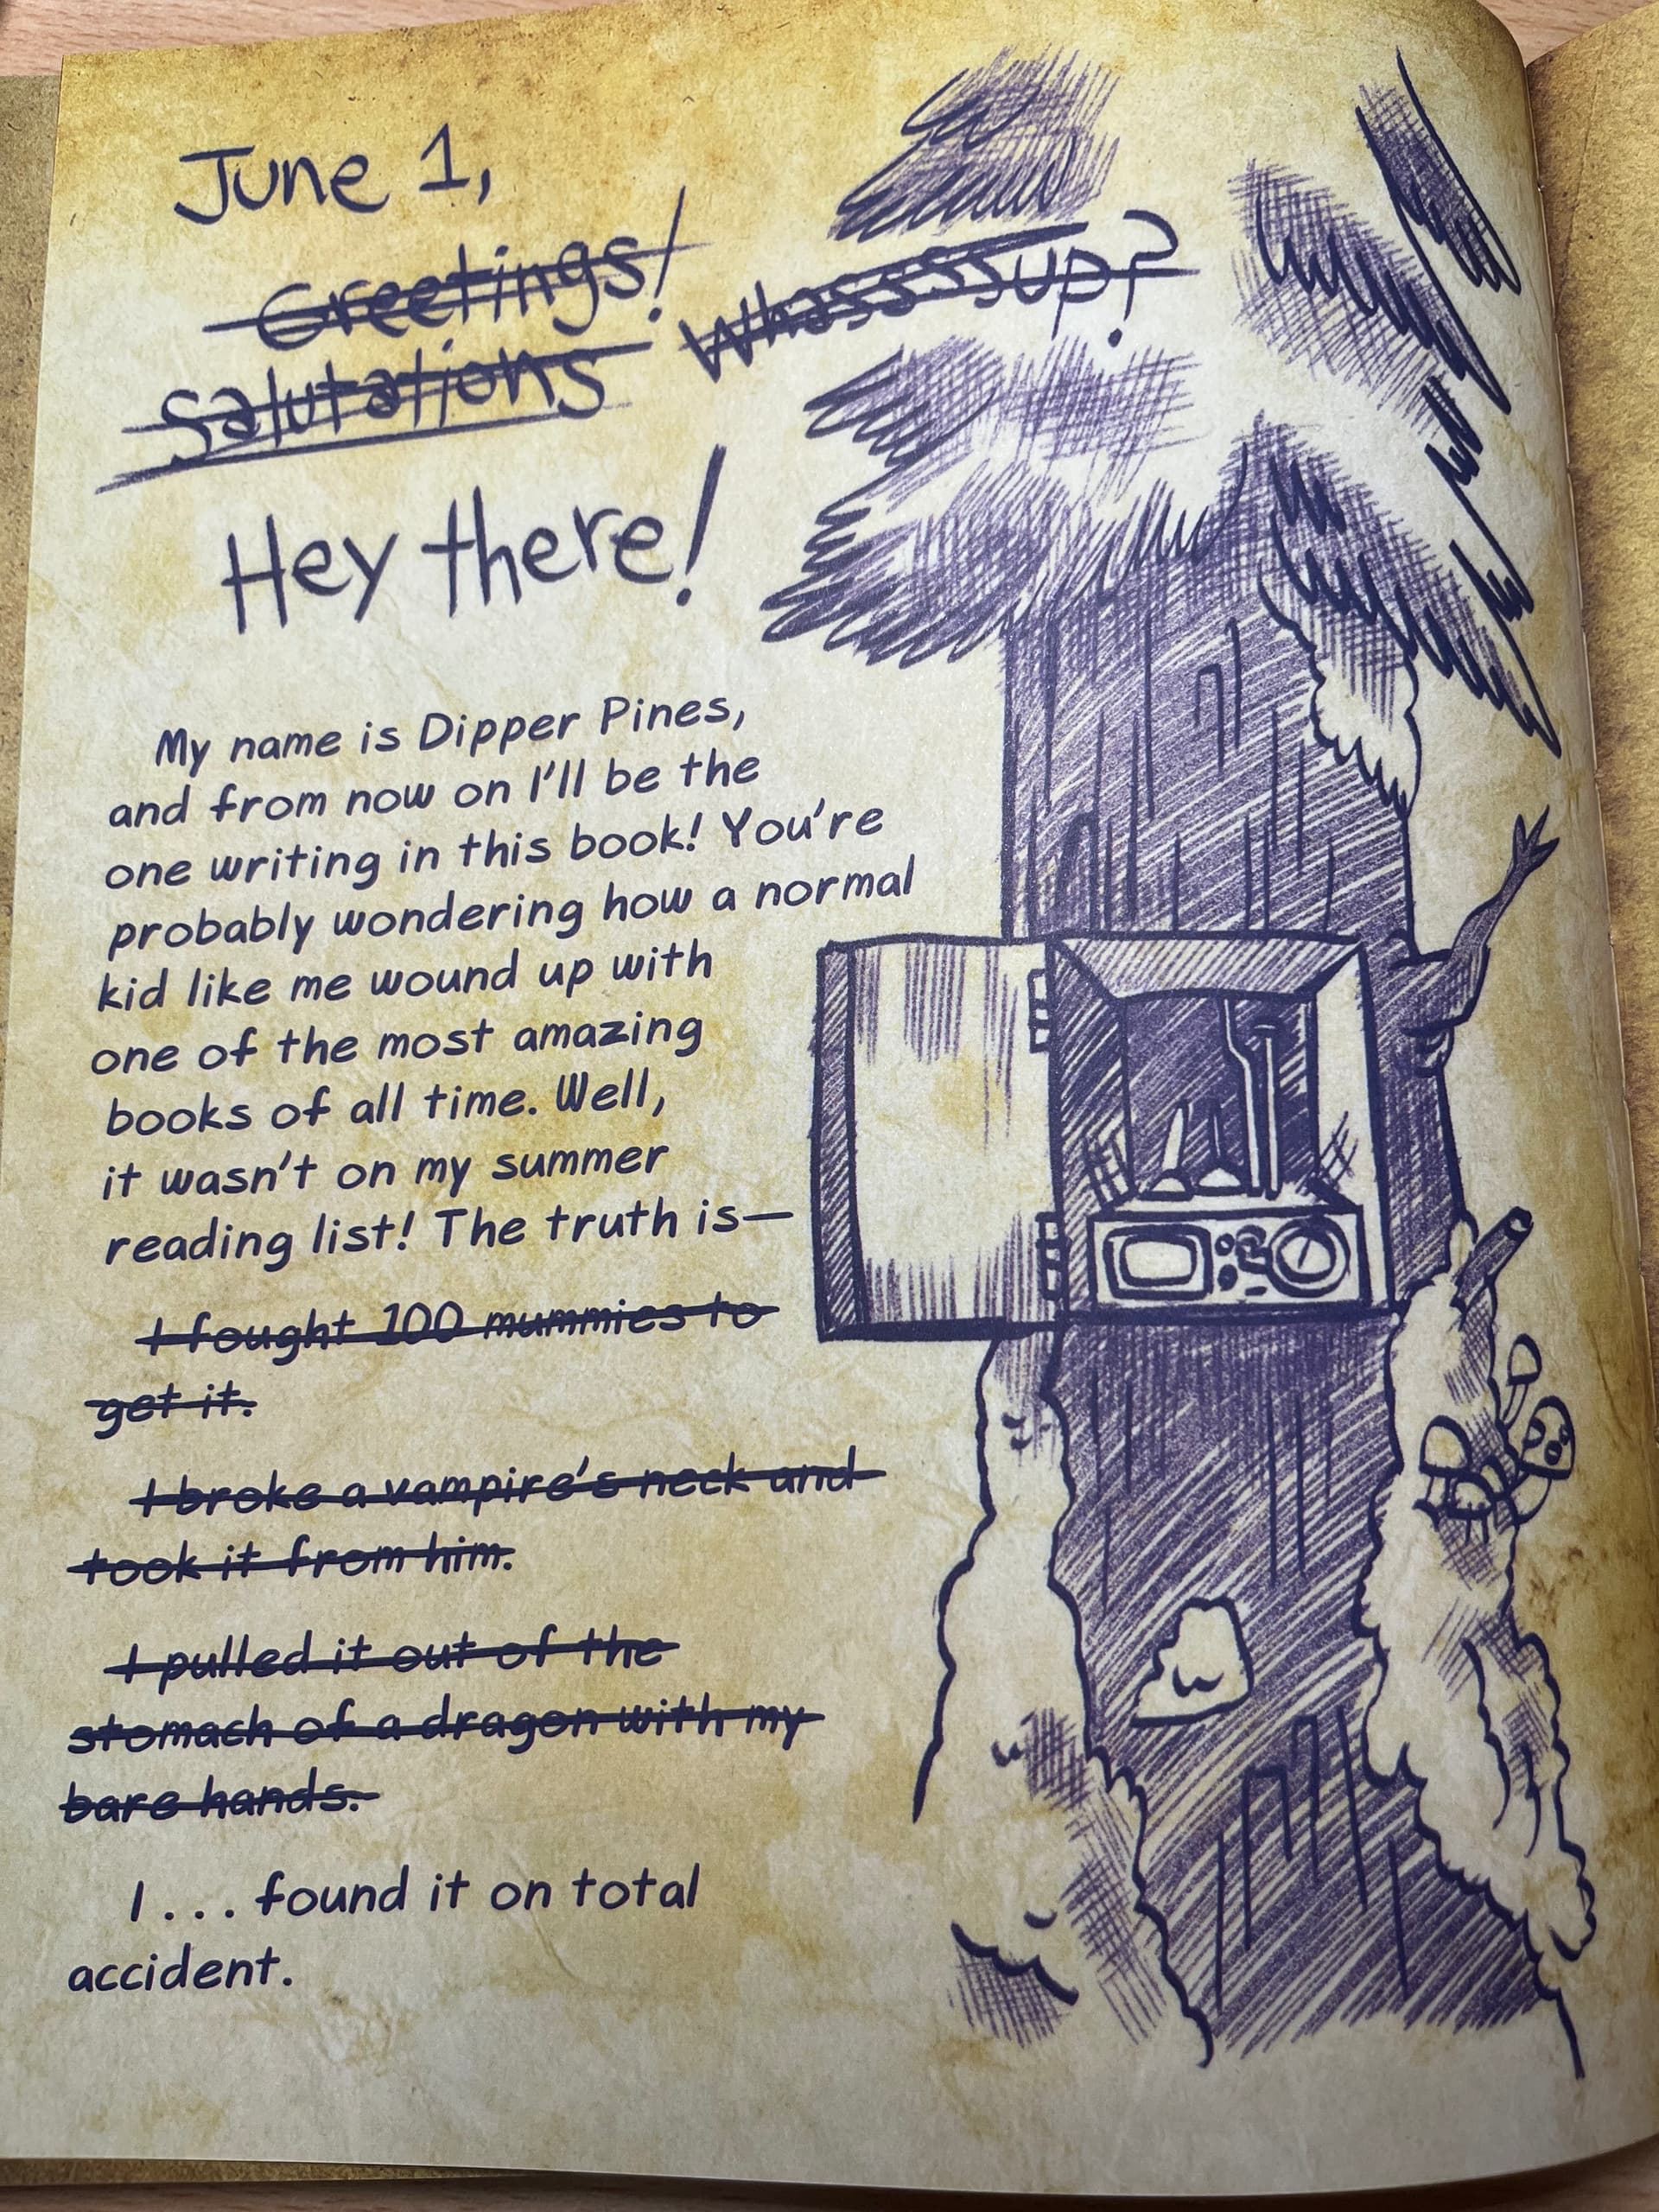 June 1,
Greetings!
Whasssssup?
Salutations
Hey there!
My name is Dipper Pines,
and from now on I'll be the
one writing in this book! You're
probably wondering how a normal
kid like me wound up with
one of the most amazing
books of all time. Well,
it wasn't on my summer
reading list! The truth is—
I fought 100 mummies to
get it.
I broke a vampire's neck and
took it from him.
I pulled it out of the
stomach of a dragon with my
bare hands.
I... found it on total
accident.